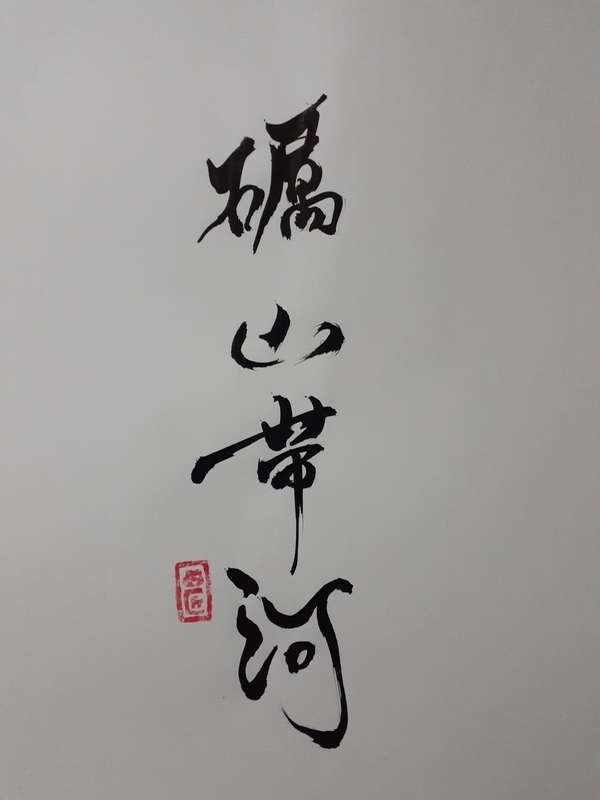 礪山帶河